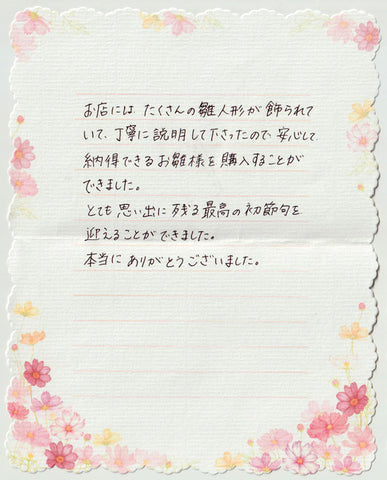 お店には、たくさんの雛人形が飾られて
いて、丁寧に説明して下さったので、安心して
納得できるお雛様を購入することが
できました。
とても思い出に残る最高の初節句を
迎えることができました。
本当にありがとうございました。